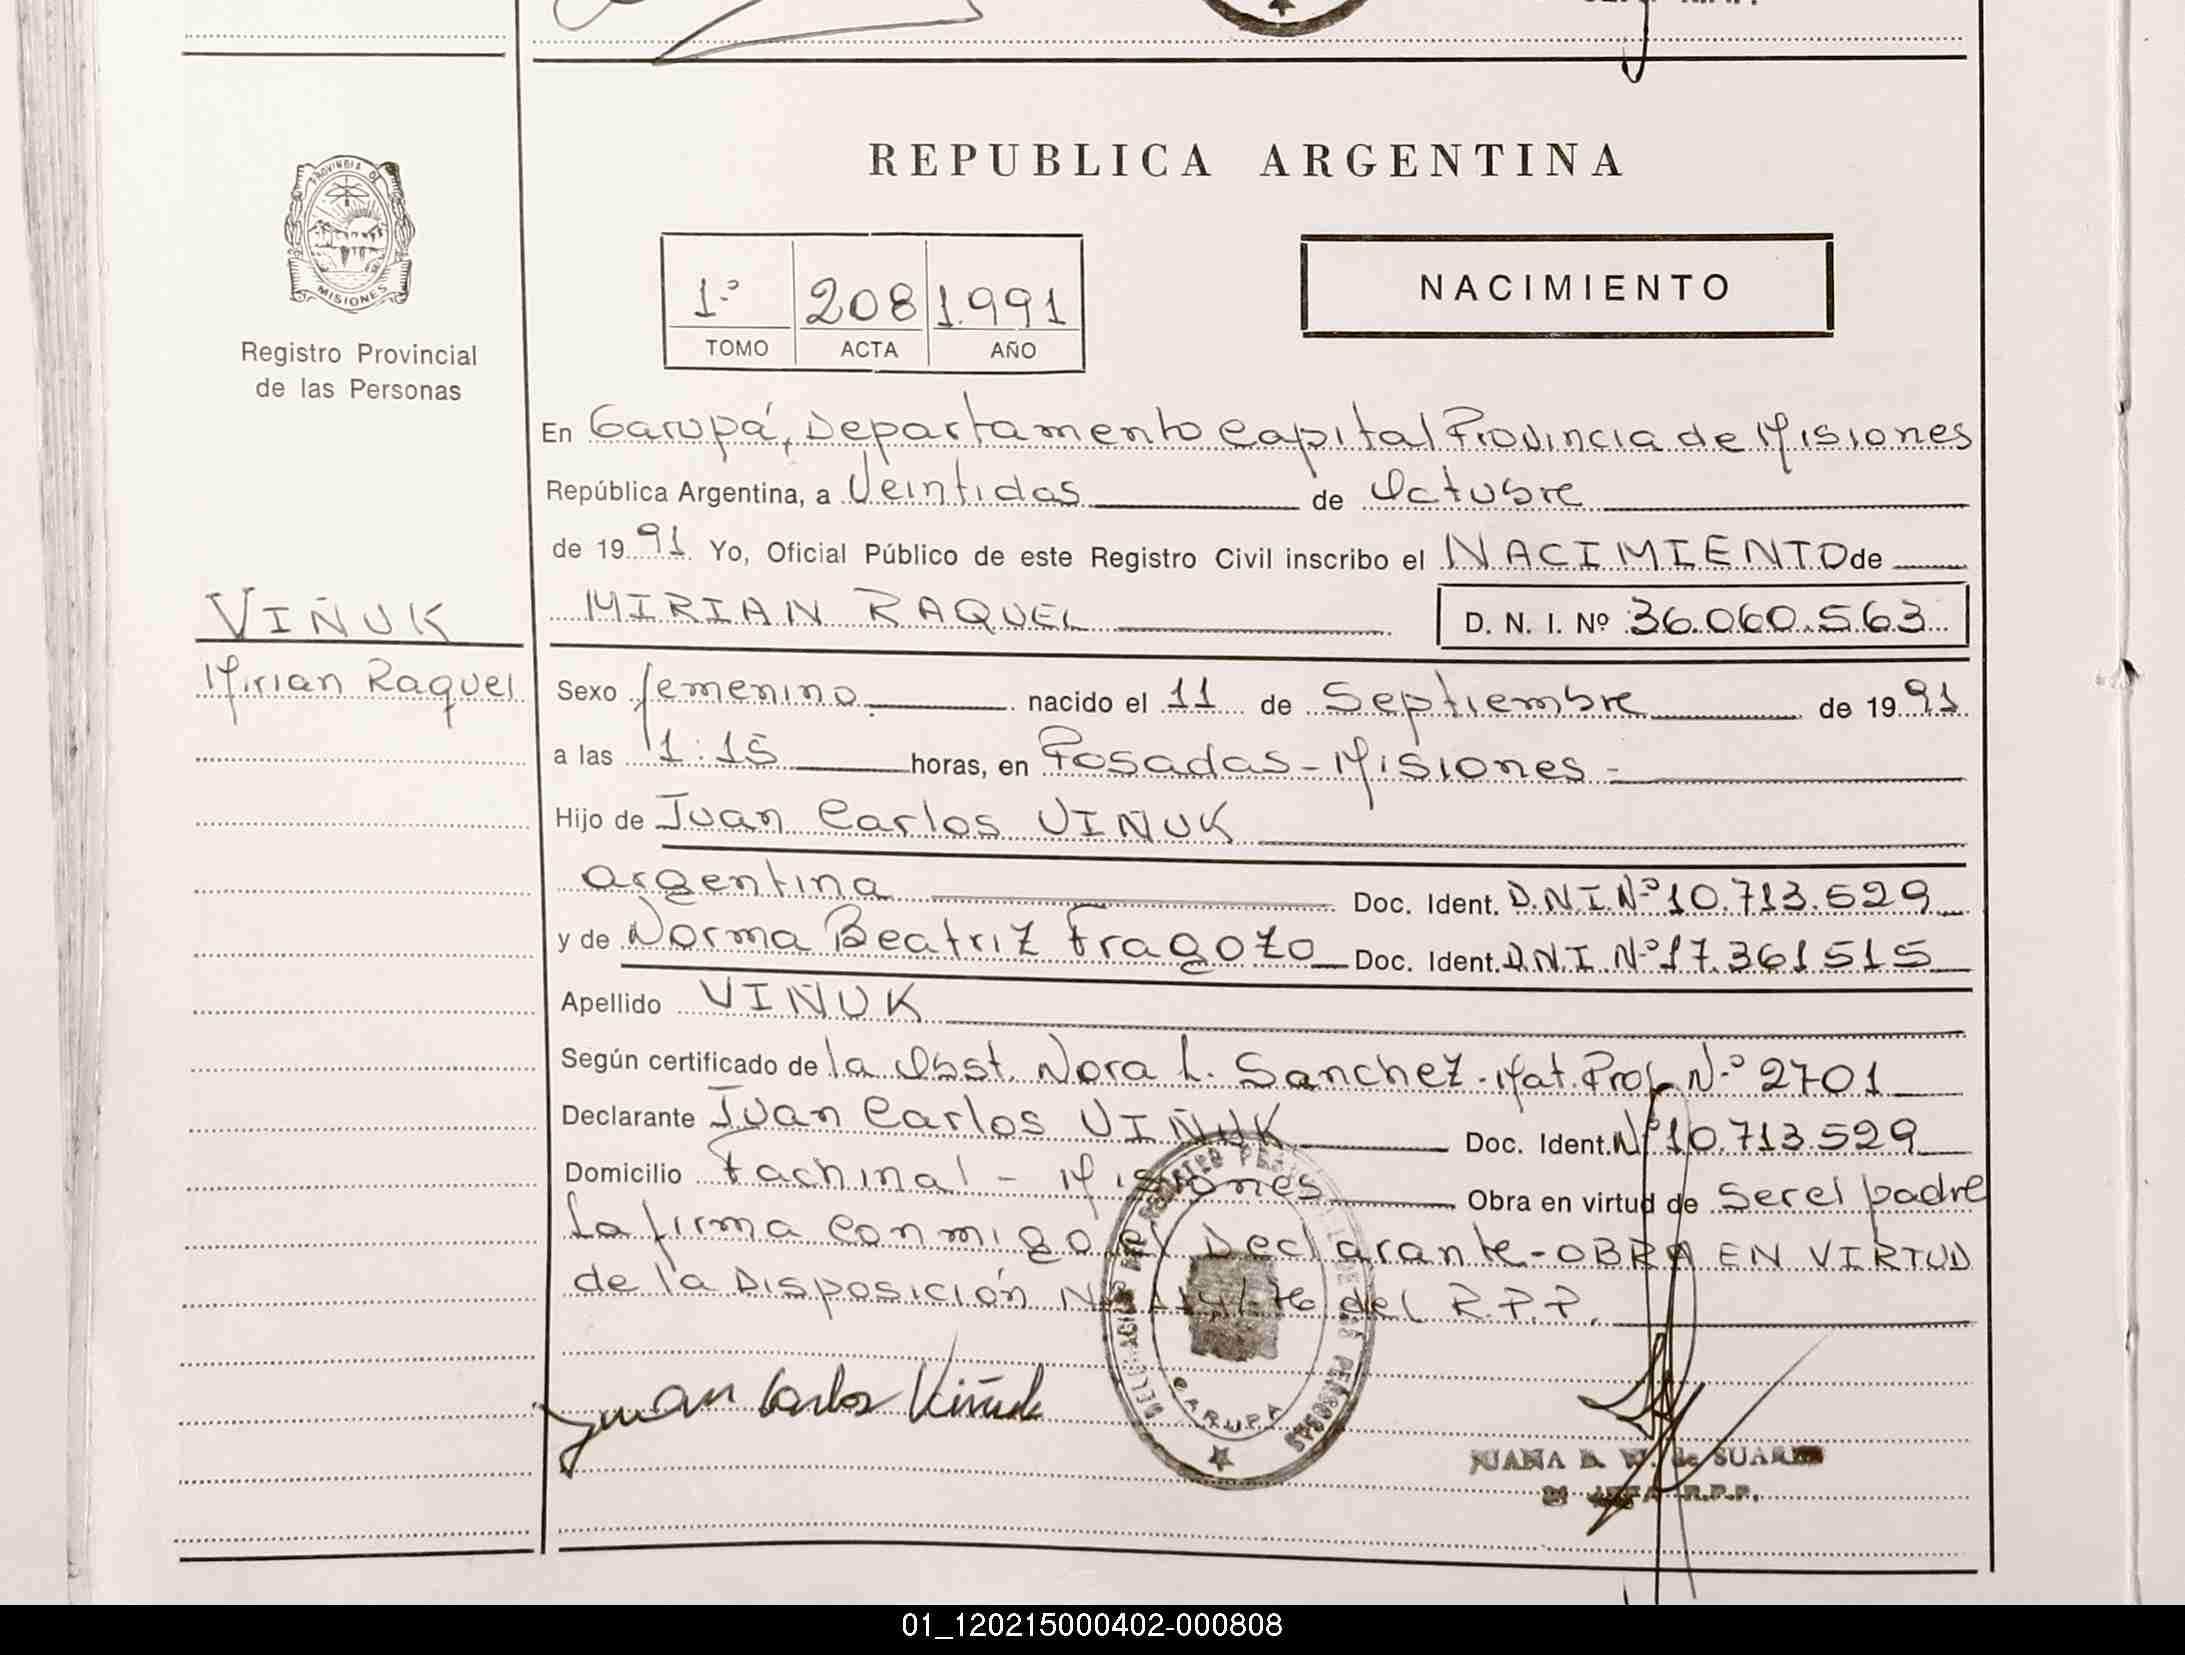 REPUBLICA ARGENTINA
PROVINCIA DE
MISIONES
Registro Provincial
de las Personas
1º 208 1.991
TOMO ACTA AÑO
NACIMIENTO
En Garupá, Departamento Capital Provincia de Misiones
República Argentina, a Veintidos de Octubre
de 1991 Yo, Oficial Público de este Registro Civil inscribo el NACIMIENTO de
VIÑUK
MIRIAN RAQUEL D. N. I. Nº 36.060.563
Mirian Raquel
Sexo femenino nacido el 11 de Septiembre de 1991
a las 1:15 horas, en Posadas - Misiones -
Hijo de Juan Carlos VIÑUK
argentina Doc. Ident. D.N.I Nº 10.713.529
y de Norma Beatriz Fragozo Doc. Ident. D.N.I. Nº 17.361515
Apellido VIÑUK
Según certificado de la Obst. Nora L. Sanchez - Mat. Prof. Nº 2701
Declarante Juan Carlos VIÑUK Doc. Ident. Nº 10.713.529
Domicilio Fachinal - Misiones Obra en virtud de Ser el padre
La firma conmigo el Declarante - OBRA EN VIRTUD
de la Disposición Nº del R.P.P.
Juan Carlos Viñuk
DELEGACION DEL REGISTRO DE LAS PERSONAS
GARUPA
JUANA B. W. de SUAREZ
JEFA R.P.P.
01_120215000402-000808